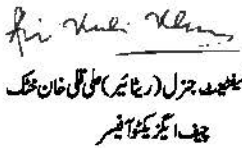 Ali Kuli Khan
لیفٹیننٹ جنرل (ریٹائیر) علی قلی خان خٹک
چیف ایگزیکٹو آفیسر